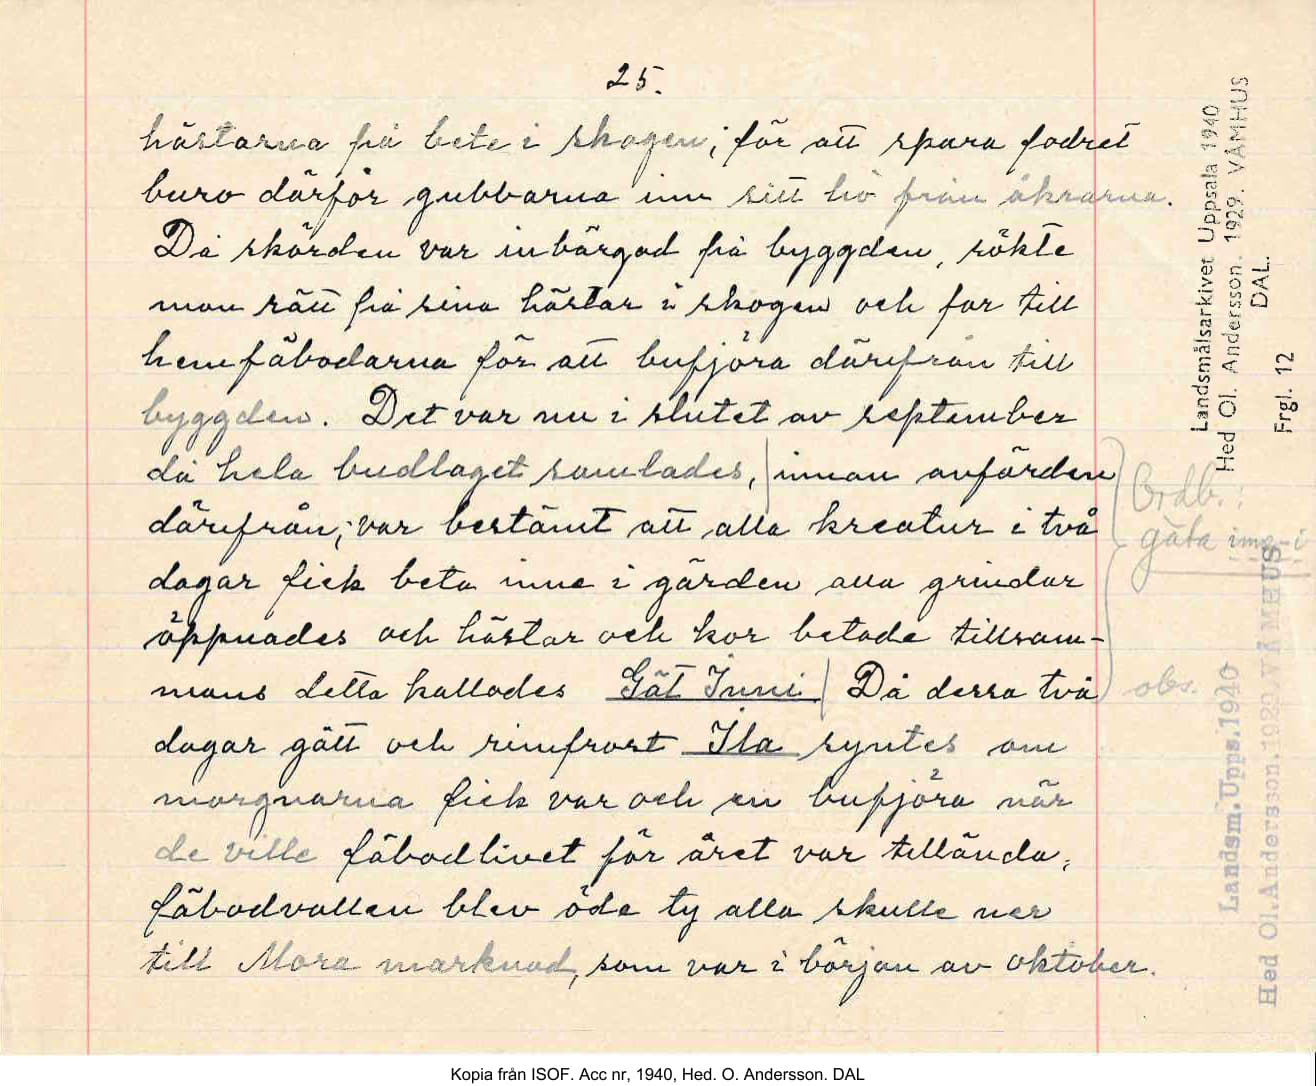 25.
hästarna på bete i skogen; för att spara fodret
buro därför gubbarna inn sitt hö från åkrarna.
Då skörden var inbärgad på byggden, sökte
man rätt på sina hästar i skogen och for till
hemfäbodarna för att bufjöra därifrån till
byggden. Det var nu i slutet av september
då hela budlaget samlades, innan avfärden
därifrån; var bestämt att alla kreatur i två
dagar fick beta inne i gärden alla grindar
öppnades och hästar och kor betade tillsam-
mans detta kallades Gät Inni Då dessa två
dagar gått och rimfrost Ila syntes om
morgnarna fick var och en bufjöra när
de ville fäbodlivet för året var tillända,
fäbodvallen blev öde ty alla skulle ner
till Mora marknad, som var i början av oktober.
Ordb.:
gäta inne i
obs.
Landsmålsarkivet Uppsala 1940
Hed Ol. Andersson. 1929. VÅMHUS
DAL.
Frgl. 12
Landsm. Upps. 1940
Hed Ol. Andersson. 1929. VÅMHUS
Kopia från ISOF. Acc nr, 1940, Hed. O. Andersson. DAL